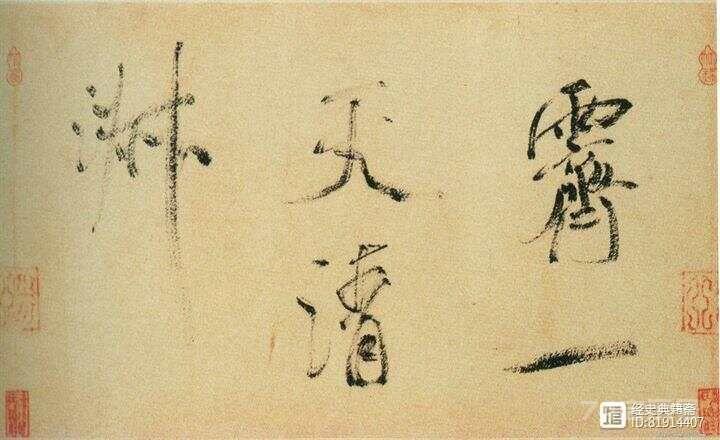 霽一
天清
淑
经史典籍斋
ID:81914407